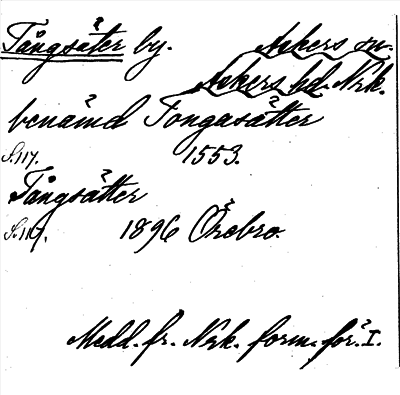 Tångsäter by. Askers sn.
Askers hd. Nrk.
benämd Tongasätter
S. 117. 1553.
Tångsätter
S. 117. 1896 Örebro.
Medd. fr. Nrk. form. för. I.